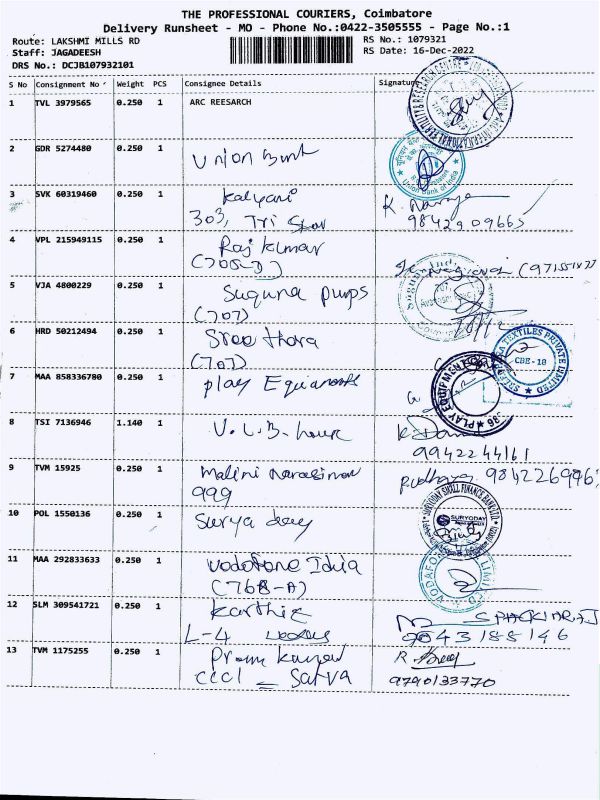 THE PROFESSIONAL COURIERS, Coimbatore
Delivery Runsheet - MO - Phone No.:0422-3505555 - Page No.:1
Route: LAKSHMI MILLS RD RS No.: 1079321
Staff: JAGADEESH RS Date: 16-Dec-2022
DRS No.: DCJB107932101
S No Consignment No Weight PCS Consignee Details Signature
1 TVL 3979565 0.250 1 ARC REESARCH
2 GDR 5274480 0.250 1 Union Bank
Union Bank of India
3 SVK 60319460 0.250 1 Kalyani
303, Tri Star
9842909665
4 VPL 215949115 0.250 1 Raj Kumar
(705-D)
5 VJA 4800229 0.250 1 Suguna Pumps
(707)
6 HRD 50212494 0.250 1 Sree thara
(707)
TEXTILES PRIVATE LIMITED
CBE-18
7 MAA 858336780 0.250 1 Play Equiments
PLAY EQUIPMENT
8 TSI 7136946 1.140 1 V.L.B. house
9942244161
9 TVM 15925 0.250 1 Malini
999
10 POL 1550136 0.250 1 Surya dey
SURYODAY
11 MAA 292833633 0.250 1 Vodafone Idia
(768-A)
12 SLM 309541721 0.250 1 Karthik
L-4
9043188146
13 TVM 1175255 0.250 1 Prem Kumar
CCCl - Sarva
9790133770